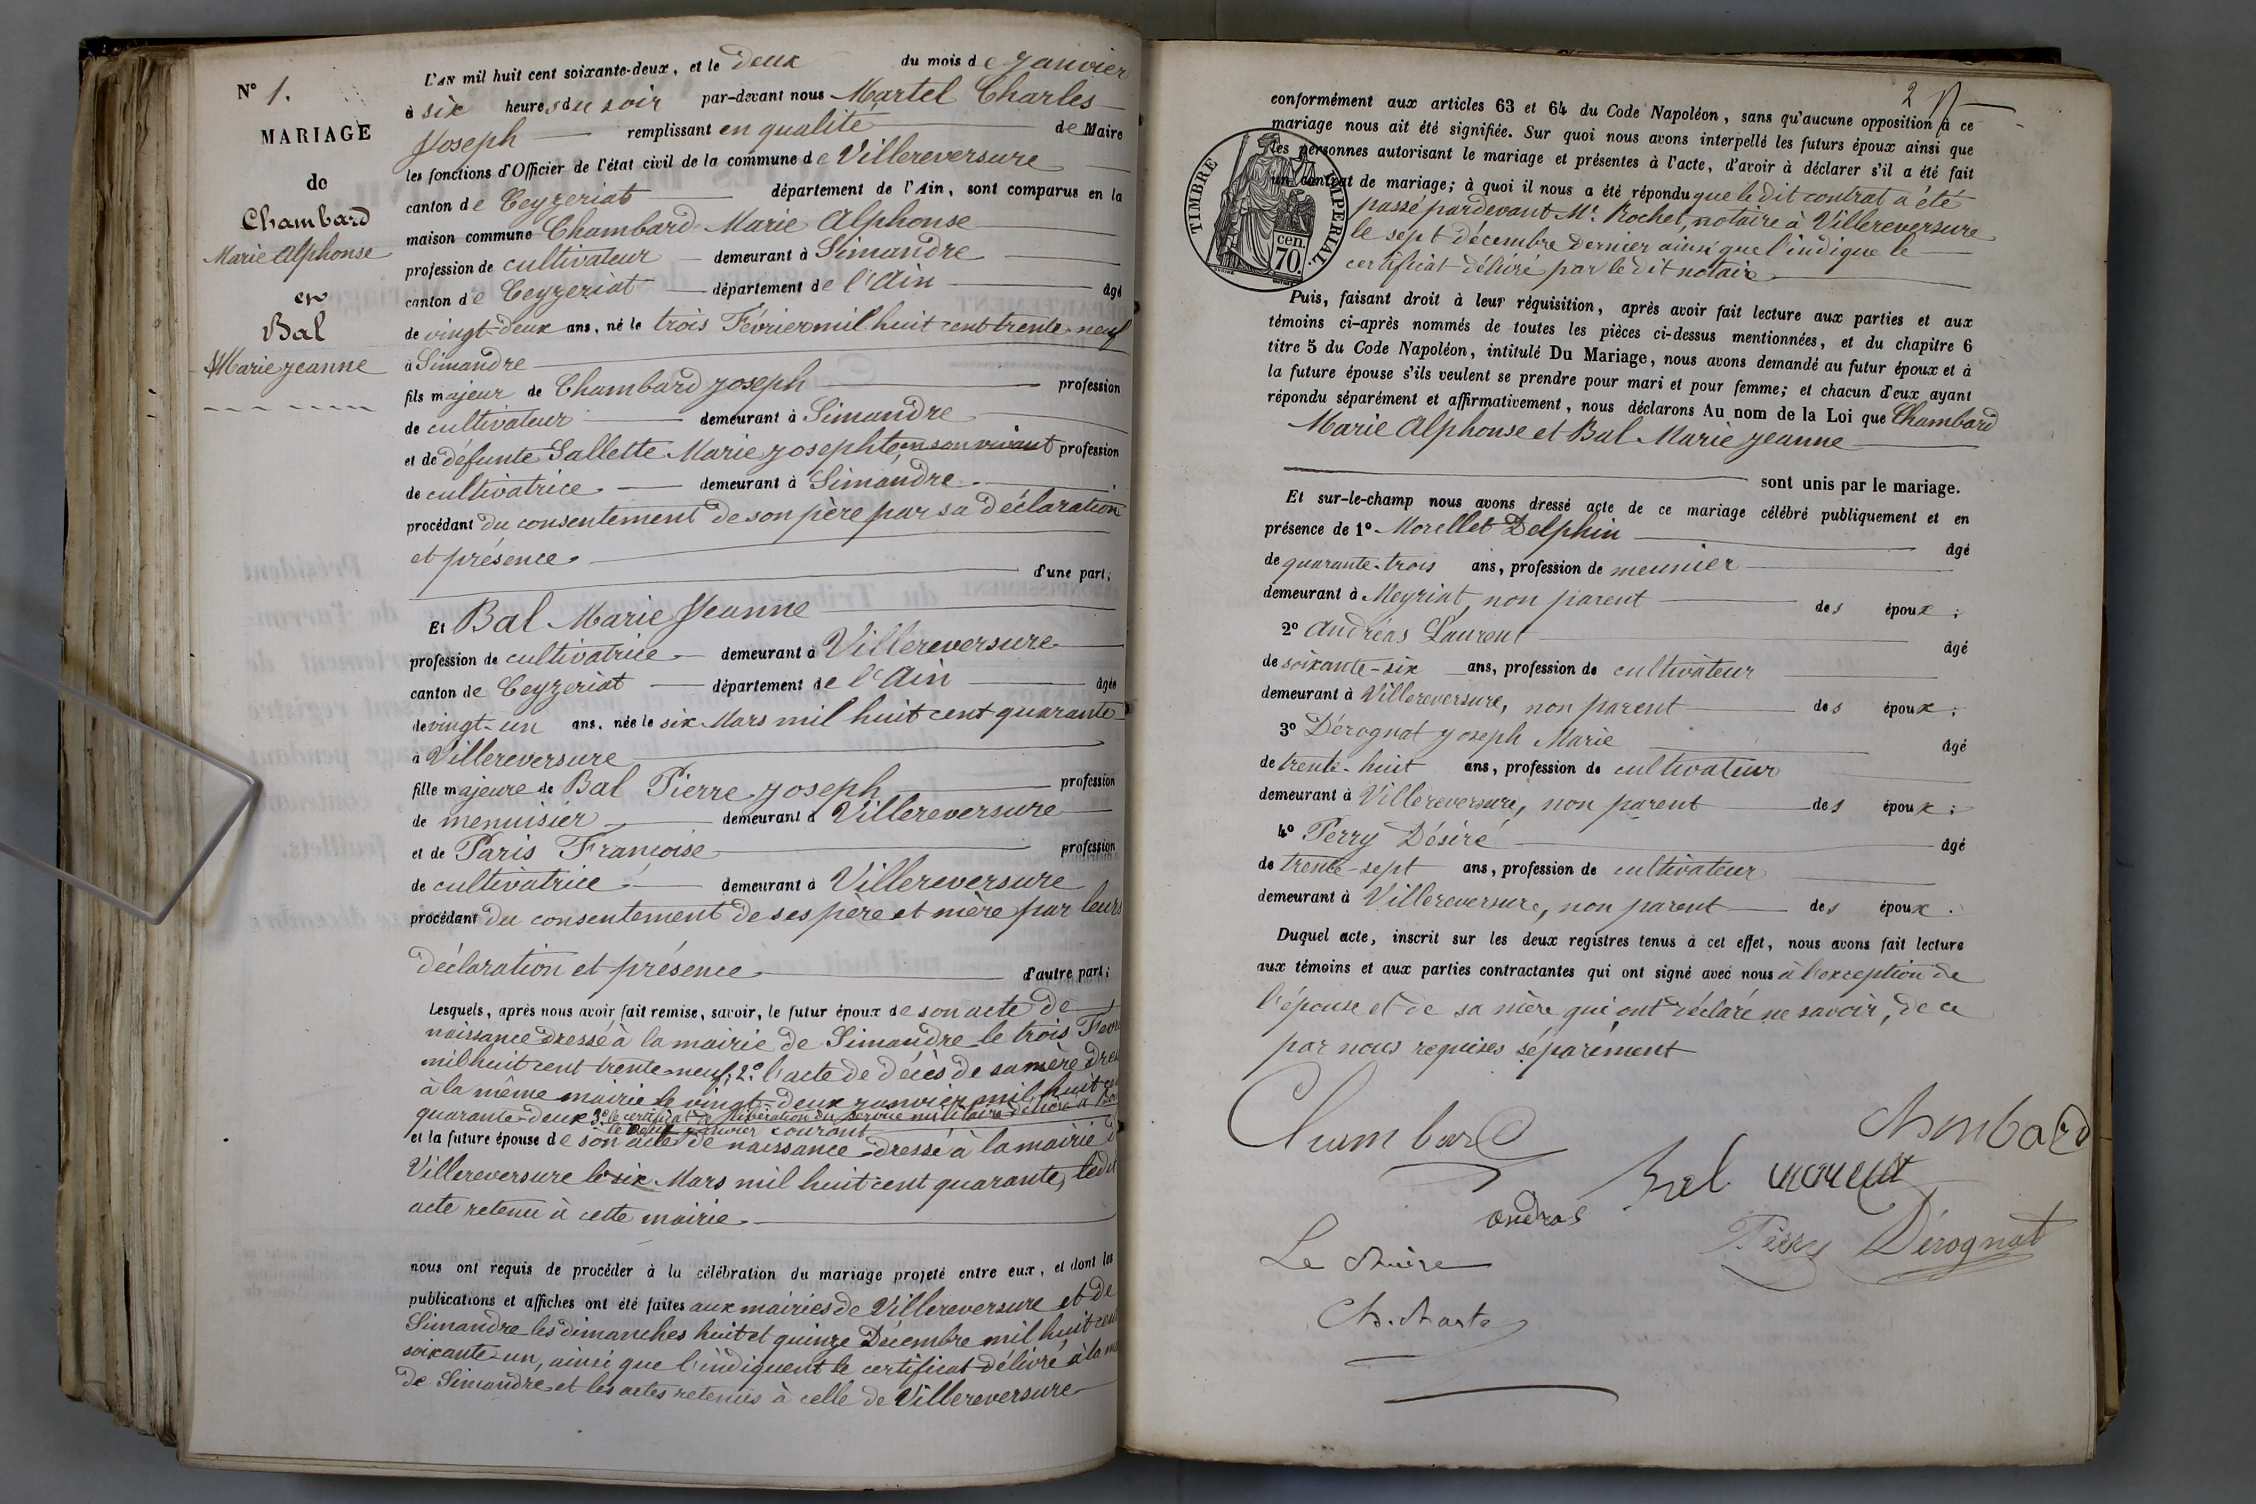 N° 1.
MARIAGE
de
Chambard
Marie Alphonse
et
Bal
Marie Jeanne
L'AN mil huit cent soixante-deux, et le deux du mois de Janvier
à six heures du soir par-devant nous Martel Charles
Joseph remplissant en qualité de Maire
les fonctions d'Officier de l'état civil de la commune de Villereversure
canton de Ceyzeriat département de l'Ain, sont comparus en la
maison commune Chambard Marie Alphonse
profession de cultivateur demeurant à Simandre
canton de Ceyzeriat département de l'Ain âgé
de vingt-deux ans, né le trois Février mil huit cent trente-neuf
à Simandre
fils majeur de Chambard Joseph profession
de cultivateur demeurant à Simandre
et de défunte Sallette Marie Josephte, en son vivant profession
de cultivatrice demeurant à Simandre
procédant du consentement de son père par sa déclaration
et présence
d'une part;
Et Bal Marie Jeanne
profession de cultivatrice demeurant à Villereversure
canton de Ceyzeriat département de l'Ain âgée
de vingt-un ans, née le six Mars mil huit cent quarante
à Villereversure
fille majeure de Bal Pierre Joseph profession
de menuisier demeurant à Villereversure
et de Paris Françoise profession
de cultivatrice demeurant à Villereversure
procédant du consentement de ses père et mère par leurs
déclaration et présence
d'autre part;
Lesquels, après nous avoir fait remise, savoir, le futur époux de son acte de
naissance dressé à la mairie de Simandre le trois
mil huit cent trente-neuf; 2° l'acte de décès de sa mère
à la même mairie le vingt-deux janvier mil huit
quarante-deux 3° le certificat de libération du service militaire délivré à
le deux janvier courant
et la future épouse de son acte de naissance dressé à la mairie
Villereversure le six Mars mil huit cent quarante, ledit
acte retenu à cette mairie.
nous ont requis de procéder à la célébration du mariage projeté entre eux, et dont les
publications et affiches ont été faites aux mairies de Villereversure et de
Simandre les dimanches huit et quinze Décembre mil huit cent
soixante-un, ainsi que l'indiquent le certificat délivré à la
de Simandre et les actes retenus à celle de Villereversure
2
conformément aux articles 63 et 64 du Code Napoléon, sans qu'aucune opposition à ce
mariage nous ait été signifiée. Sur quoi nous avons interpellé les futurs époux ainsi que
les personnes autorisant le mariage et présentes à l'acte, d'avoir à déclarer s'il a été fait
un contrat de mariage; à quoi il nous a été répondu que le dit contrat a été
passé pardevant Mr. Rochet, notaire à Villereversure
le sept décembre dernier ainsi que l'indique le
certificat délivré par le dit notaire
TIMBRE IMPERIAL.
cen.
70.
Puis, faisant droit à leur réquisition, après avoir fait lecture aux parties et aux
témoins ci-après nommés de toutes les pièces ci-dessus mentionnées, et du chapitre 6
titre 5 du Code Napoléon, intitulé Du Mariage, nous avons demandé au futur époux et à
la future épouse s'ils veulent se prendre pour mari et pour femme; et chacun d'eux ayant
répondu séparément et affirmativement, nous déclarons Au nom de la Loi que Chambard
Marie Alphonse et Bal Marie Jeanne
sont unis par le mariage.
Et sur-le-champ nous avons dressé acte de ce mariage célébré publiquement et en
présence de 1° Morellet Delphin âgé
de quarante-trois ans, profession de meunier
demeurant à Meyriat, non parent des époux;
2° Andréas Laurent âgé
de soixante-six ans, profession de cultivateur
demeurant à Villereversure, non parent des époux;
3° Dérognat Joseph Marie âgé
de trente-huit ans, profession de cultivateur
demeurant à Villereversure, non parent des époux;
4° Perry Désiré âgé
de trente-sept ans, profession de cultivateur
demeurant à Villereversure, non parent des époux.
Duquel acte, inscrit sur les deux registres tenus à cet effet, nous avons fait lecture
aux témoins et aux parties contractantes qui ont signé avec nous à l'exception de
l'épouse et de sa mère qui ont déclaré ne savoir, de ce
par nous requises séparément
Chambard
Chambard
Bal
andras
Perry Dérognat
Le Maire
Ch. Martel